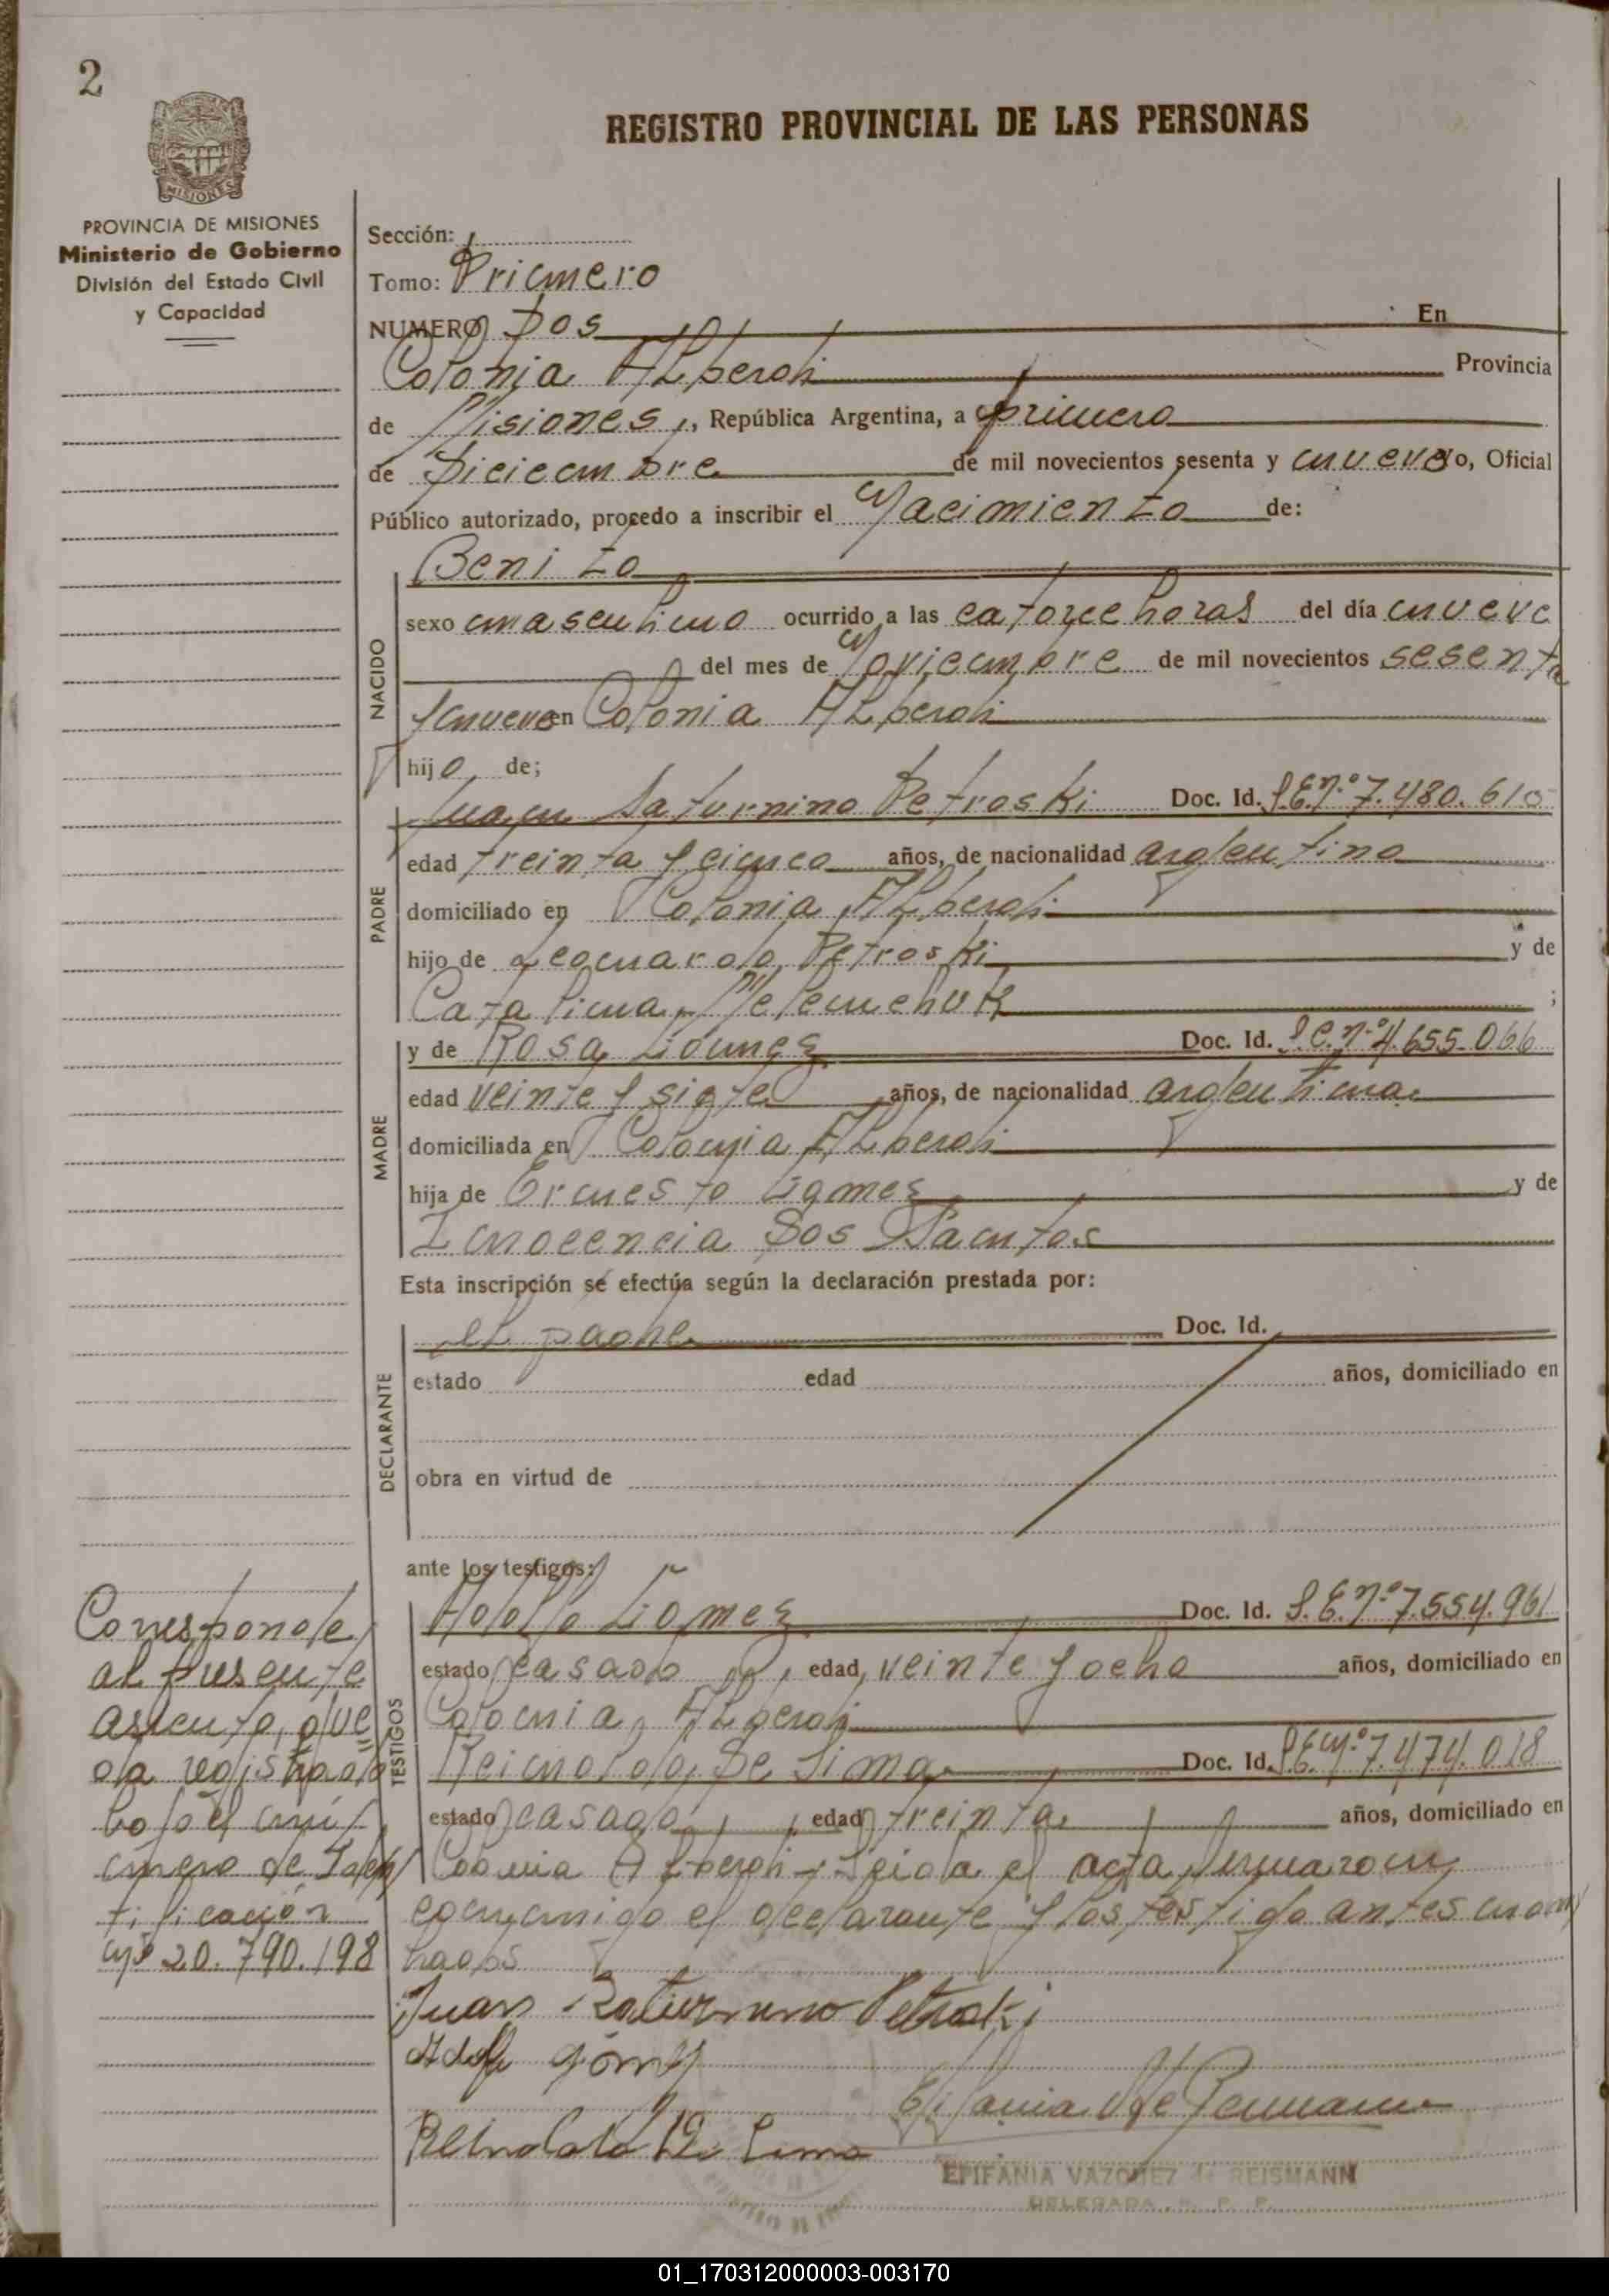 2
REGISTRO PROVINCIAL DE LAS PERSONAS
MISIONES
PROVINCIA DE MISIONES
Ministerio de Gobierno
División del Estado Civil
y Capacidad
Sección:
Tomo: Primero
NUMERO Dos En
Colonia Alberdi Provincia
de Misiones, República Argentina, a primero
de Diciembre de mil novecientos sesenta y nueve yo, Oficial
Público autorizado, procedo a inscribir el Nacimiento de:
Benito
NACIDO
sexo masculino ocurrido a las catorce horas del día nueve
del mes de Noviembre de mil novecientos sesenta
y nueve en Colonia Alberdi
hijo de;
PADRE
Juan Saturnino Petroski Doc. Id. L.E.Nº 7.480.610
edad treinta y cinco años, de nacionalidad argentino
domiciliado en Colonia Alberdi
hijo de Leonardo Petroski y de
Catalina Melenchuk ;
MADRE
y de Rosa Gómez Doc. Id. L.C.Nº 4.655.066
edad veinte y siete años, de nacionalidad argentina
domiciliada en Colonia Alberdi
hija de Ernesto Gómez y de
Inocencia Dos Santos
Esta inscripción se efectúa según la declaración prestada por:
DECLARANTE
el padre Doc. Id.
estado edad años, domiciliado en
obra en virtud de
ante los testigos:
TESTIGOS
Adolfo Gómez Doc. Id. L.E.Nº 7.554.961
estado casado, edad veinte y ocho años, domiciliado en
Colonia Alberdi
Reinaldo De Lima Doc. Id. L.E.Nº 7.474.018
estado casado, edad treinta años, domiciliado en
Colonia Alberdi. Leida el acta, firmaron
conmigo el declarante y los testigo antes nom
brados
Corresponde
al presente
asiento, que
da registrado
bajo el nú-
mero de Iden
tificación
Nº 20.790.198
Juan Saturnino Petroski
Adolfo Gómez
Reinaldo De Lima
Epifania V de Reismann
EPIFANIA VAZQUEZ de REISMANN
DELEGADA R. P. P.
01_170312000003-003170